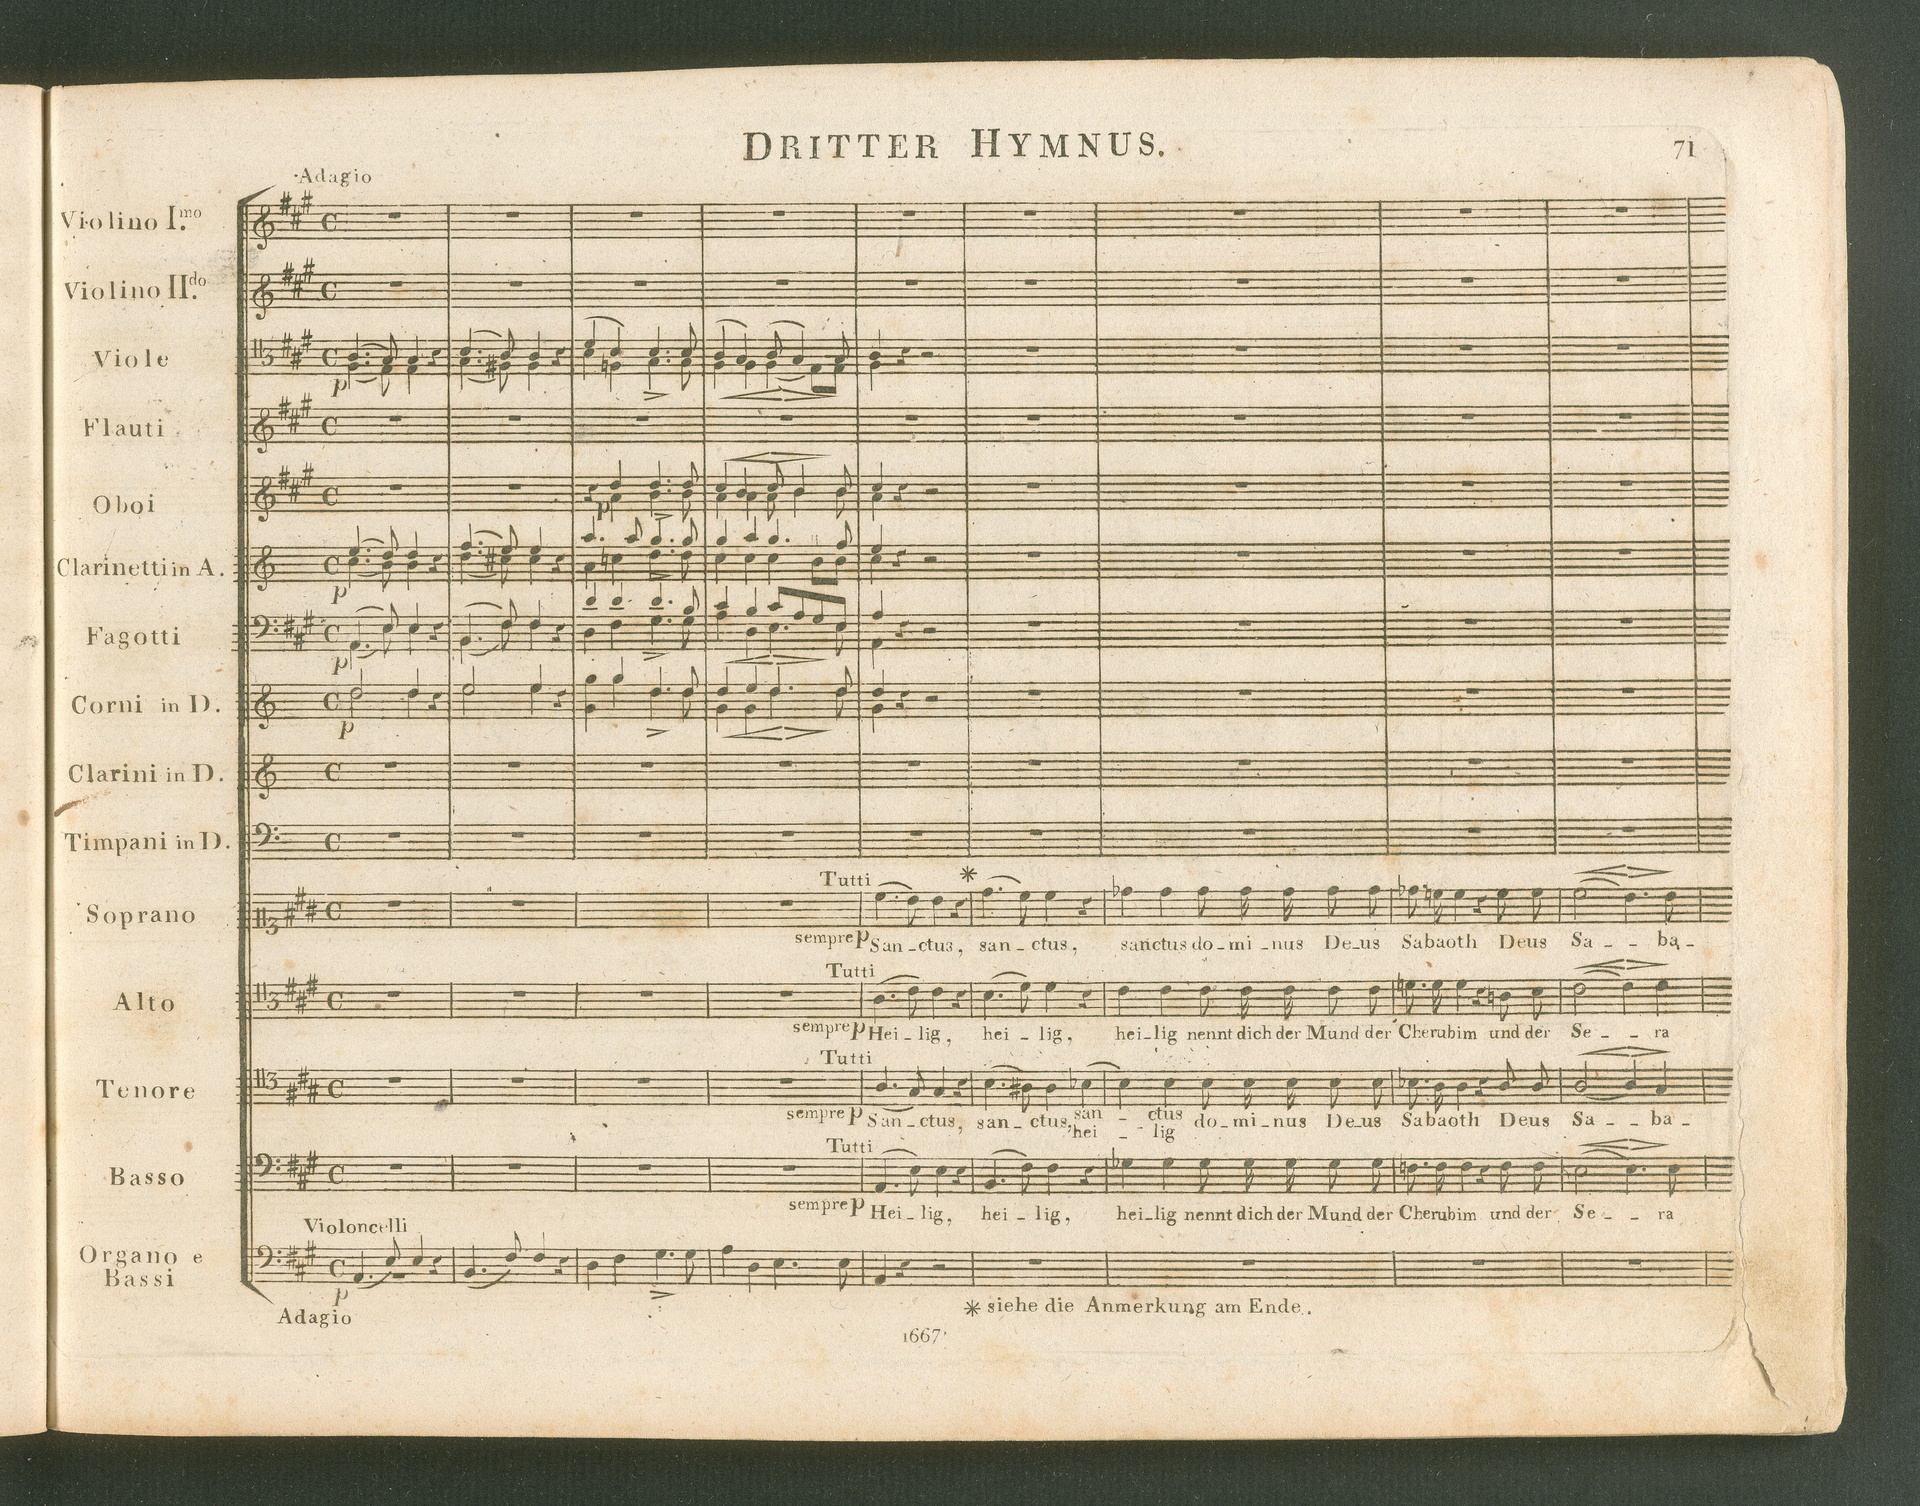 DRITTER HYMNUS.
71
Adagio
Violino I.mo
Violino II.do
Viole
p
Flauti
Oboi
p
Clarinetti in A.
p
Fagotti
p
Corni in D.
p
Clarini in D.
Timpani in D.
Tutti *
Soprano
sempre p San_ctus, san_ctus, sanctus do_mi_nus De_us Sabaoth Deus Sa_ _ba_
Tutti
Alto
sempre p Hei_lig, hei_lig, hei_lig nennt dich der Mund der Cherubim und der Se_ _ra
Tutti
Tenore
sempre p San_ctus, san_ctus, san_ctus do_mi_nus De_us Sabaoth Deus Sa_ _ba_
hei_lig
Tutti
Basso
sempre p Hei_lig, hei_lig, hei_lig nennt dich der Mund der Cherubim und der Se_ _ra
Violoncelli
Organo e
Bassi
p
Adagio
* siehe die Anmerkung am Ende.
1667